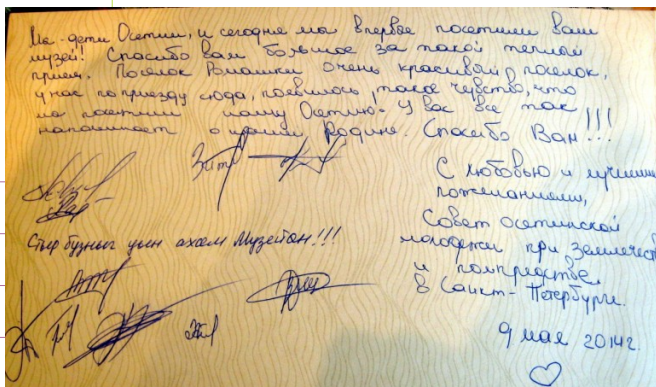 Мы - дети Осетии, и сегодня мы впервые посетили ваш
музей! Спасибо вам большое за такой теплый
прием. Поселок очень красивый поселок,
у нас по приезду сюда, появилось такое чувство, что
мы посетили нашу Осетию. У вас все так
напоминает о нашей Родине. Спасибо Вам!!!
С любовью и лучшими
пожеланиями,
Совет осетинской
молодежи при Землячестве
и полпредстве
в Санкт-Петербурге.
Стыр бузныг уын ахем Музейтæн!!!
9 мая 2014г.